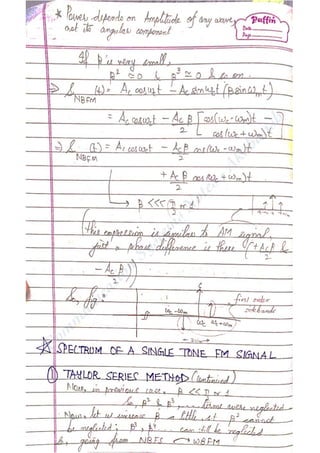 * Power depends on Amplitude of any wave,
not its angular component
Puffin
Date
Page
If β is very small,
β² ≈ 0 & β³ ≈ 0 & so on.
⇒ S (t) = Ac cos ωct − Ac sin ωct (β sin ωmt)
NBFM
= Ac cos ωct − Ac β/2 [cos(ωc−ωm)t −
cos(ωc+ωm)t]
⇒ S (t) = Ac cos ωct − Ac β/2 cos(ωc−ωm)t
NBFM
+ Ac β/2 cos(ωc+ωm)t
→ β <<< 1
(This expression is similar to AM signal,
just a phase difference is there (+Acβ/2 &
−Acβ/2))
So, fig:-
first order
sidebands
ωc−ωm
ωc ωc+ωm
* SPECTRUM OF A SINGLE TONE FM SIGNAL
① TAYLOR SERIES METHOD (continued)
Now, in previous case, β <<
So, β² & β³, ... terms were neglected
Now, let us increase β a little, so β² cannot
be neglected; β³, β⁴ ... can still be neglected
So, going from NBFS → WBFM